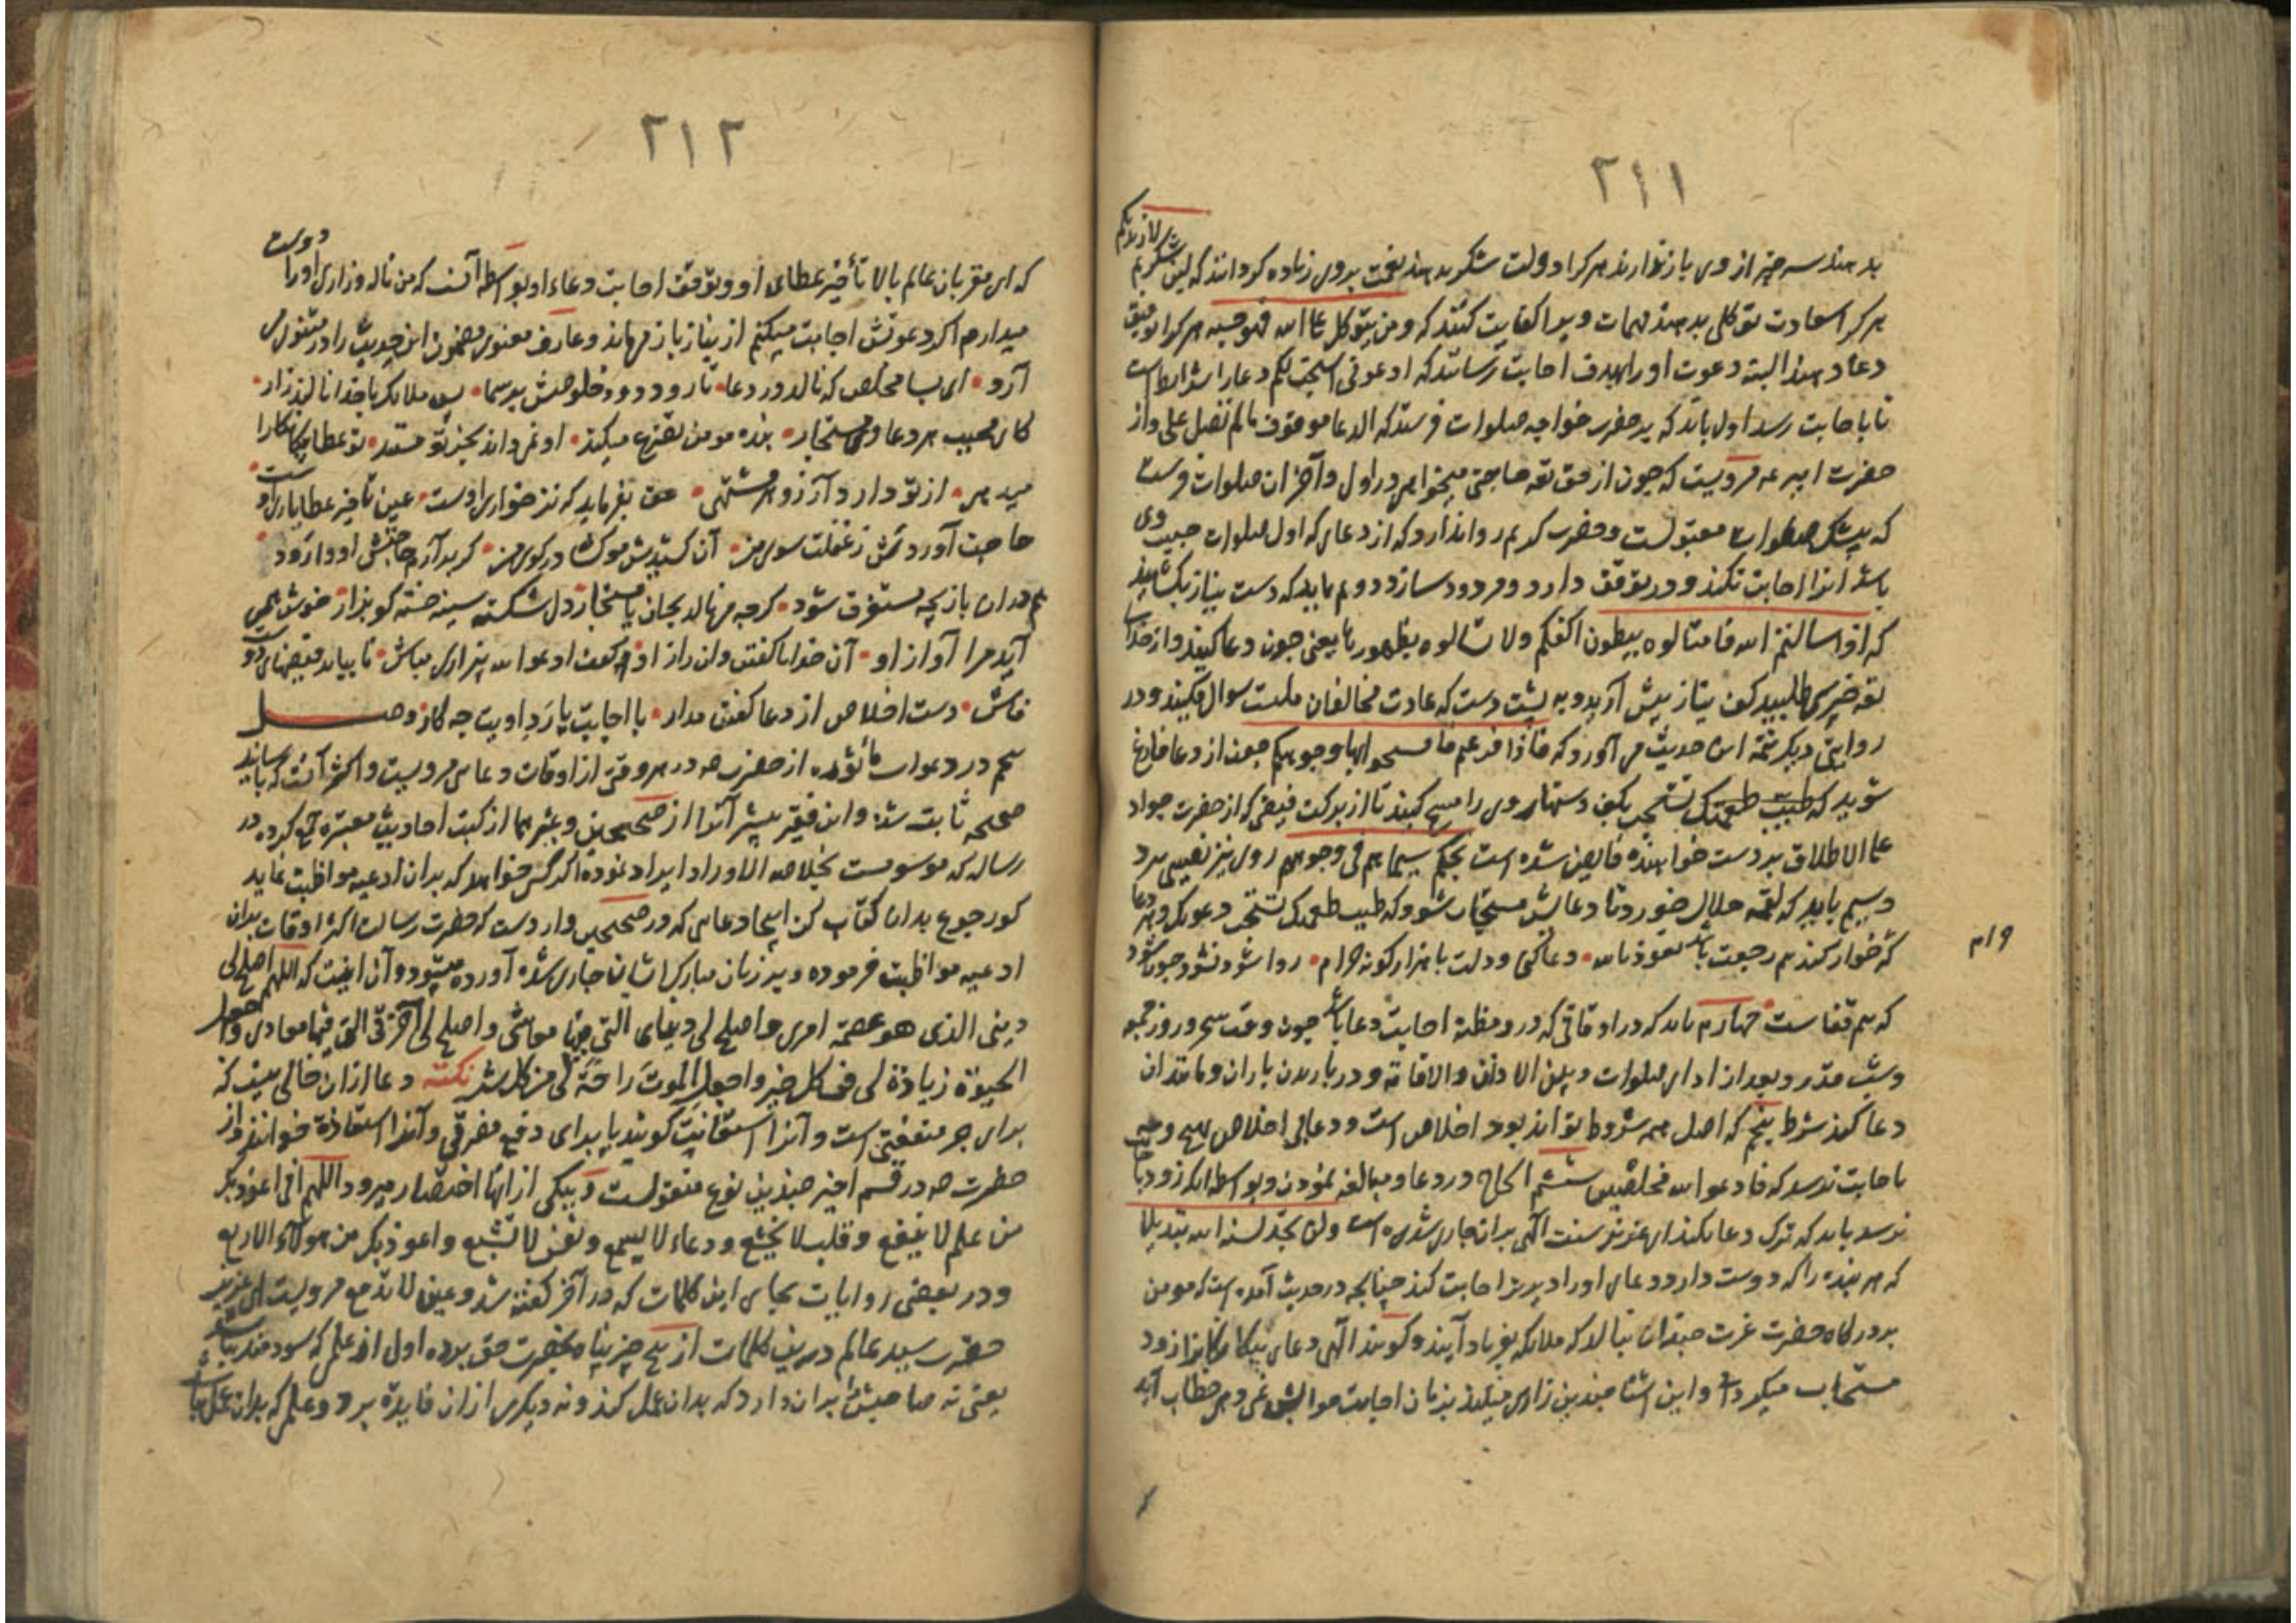 ٢١١
لازیدنکم
بدهند سه چیز از وی باز ندارند هر کرا دولت شکر بدهند نعمت بروی زیاده کردانند که لئن شکرتم
هر کرا سعادت توکل بدهند مهمات ویرا کفایت کنند که ومن یتوکل علی الله فهو حسبه هر کرا توفیق
دعا دهند البته دعوت او را بهدف اجابت رسانند که ادعونی استجب لکم دعا را شرایط است
تا باجابت رسد اول باید که بر حضرت خواجه صلوات فرستد که الدعا موقوف مالم تصل علی واز
حضرت امیر عه مرویست که چون از حق تعه حاجتی میخواهی در اول وآخر آن صلوات فرست
که بیشک صلوات مقبولست وحضرت کریم روا ندارد که از دعای که اول صلوات حبیب وی
باشد آنرا اجابت نکند ودر توقف دارد ومردود سازد دویم باید که دست نیاز بکشاید
که اذا سالتم الله فاسئالوه ببطون اکفکم ولا تسالوه بظهورها یعنی چون دعا کنید واز خدای
تعه خیری طلبید کف نیاز پیش آرید وبه پشت دست که عادت مخالفان ملت سوال مکنید ودر
روایتی دیکر تتمه این حدیث می آورد که فاذا فرغتم فامسحوا بها وجوهکم چون از دعا فارغ
شوید که طیب طعمتک تستجب بکف دستها روی را مسح کنید تا از برکت فیضی که از حضرت جواد
علی الاطلاق بر دست خواهنده فایض شده است بحکم سیماهم فی وجوههم روی نیز نصیبی برد
وسیم باید که لقمه حلال خورد تا دعایش مستجاب شود که طیب طعمتک تستجب دعوتک وهر دعا
که خوار کند هم رجعت باشد نعوذ بالله دعا کنی ودلت با هزار کونه حرام روا شود نشود چون شود
که هم قفاست چهارم باید که در اوقاتی که درو مظنه اجابت دعا باشد چون وقت سحر وروز جمعه
وشب قدر وبعد از ادای صلوات وبین الاذان والاقامة ودر باریدن باران ومانند آن
دعا کند شرط پنجم که اصل همه شروط تواند بود اخلاص است ودعای بی اخلاص بهیچ وجه
باجابت نرسد که فادعوا الله مخلصین ششم الحاح در دعا ومبالغه نمودن وبواسطه آنکه زود باجابت
نرسد باید که ترک دعا نکند ای عزیز سنت الهی بران جاری شده است ولن تجد لسنة الله تبدیلا
که هر بنده را که دوست دارد دعای او را دیرتر اجابت کند چنانچه در حدیث آمده است که مومن
بدرکاه حضرت عزت چندان بنالد که ملایکه بفریاد آیند وکویند الهی دعای بیکانکانرا زود
مستجاب میکردانی واین آشنا چندین زاری میکند بزمان اجابت موالیش نمی دهی خطاب آید
٢١٢
دوست
که ای مقربان عالم بالا تأخیر عطای او وتوقف اجابت دعاء او بواسطه آنست که من ناله وزاری او را
میدارم اکر دعوتش اجابت میکنم از نیاز باز میماند وعارف معنوی مضمون این حدیث را در مثنوی می
آرد ای بسا مخلص که نالد در دعا تا رود دود خلوصش بر سما پس ملایک با خدا نالند زار
کای مجیب هر دعا وی مستجار بنده مومن تضرع میکند او نمی داند بجز تو مستند تو عطا بیکانکانرا
میدهی از تو دارد آرزو هر مشتهی حق بفرماید که نز خواری اوست عین تاخیر عطا یاری اوست
حاجت آوردش ز غفلت سوی من آن کشیدش موکشان در کوی من کر برآرم حاجتش او وا رود
هم دران بازیچه مستغرق شود کرچه می نالد بجان یا مستجار دل شکسته سینه خسته کو بزار خوش همی
آید مرا آواز او آن خدایا کفتن وان راز او کفت ادعوا الله بی زاری مباش تا بیاید فیضهای دوست
فاش دست اخلاص از دعا کفتن مدار با اجابت یا رد اویت چه کار وصل
سیم در دعوات ماثوره از حضرت صه در هر وقتی از اوقات دعای مرویست واکثر آنست که باسانید
صحیحه ثابت شده واین فقیر بیشتر آنرا از صحیحین وغیرهما از کتب احادیث معتبره جمع کرده در
رساله که موسومست بخلاصه الاوراد ایراد نموده اکر کسی خواهد که بدان ادعیه مواظبت نماید
کو رجوع بدان کتاب کن اینجا دعای که در صحیحین واردست که حضرت رسالت اکثر اوقات بدان
ادعیه مواظبت فرموده وبر زبان مبارک ایشان جاری شده آورده میشود وآن اینست که اللهم اصلح لی
دینی الذی هو عصمة امری واصلح لی دنیای التی فیها معاشی واصلح لی آخرتی التی فیها معادی واجعل
الحیوة زیادة لی فی کل خیر واجعل الموت راحة لی من کل شر نکته دعا ازان خالی نیست که
برای جر منفعتی است وآنرا استعانت کویند یا برای دفع مضرتی وآنرا استعاذة خوانند واز
حضرت صه در قسم اخیر چندین نوع منقولست وبیکی از آنها اختصار میرود اللهم انی اعوذ بک
من علم لا ینفع وقلب لا یخشع ودعاء لا یسمع ونفس لا تشبع واعوذ بک من هولاء الاربع
ودر بعضی روایات بجای این کلمات که در آخر کفته شد وعین لا تدمع مرویست ای عزیز
حضرت سید عالم درین کلمات از پنج چیز پناه بحضرت حق برده اول از علمی که سودمند نباشد
یعنی نه صاحبش بران دارد که بدان عمل کند ونه دیکری ازان فایده برد وعلمی که بدان عمل نباشد